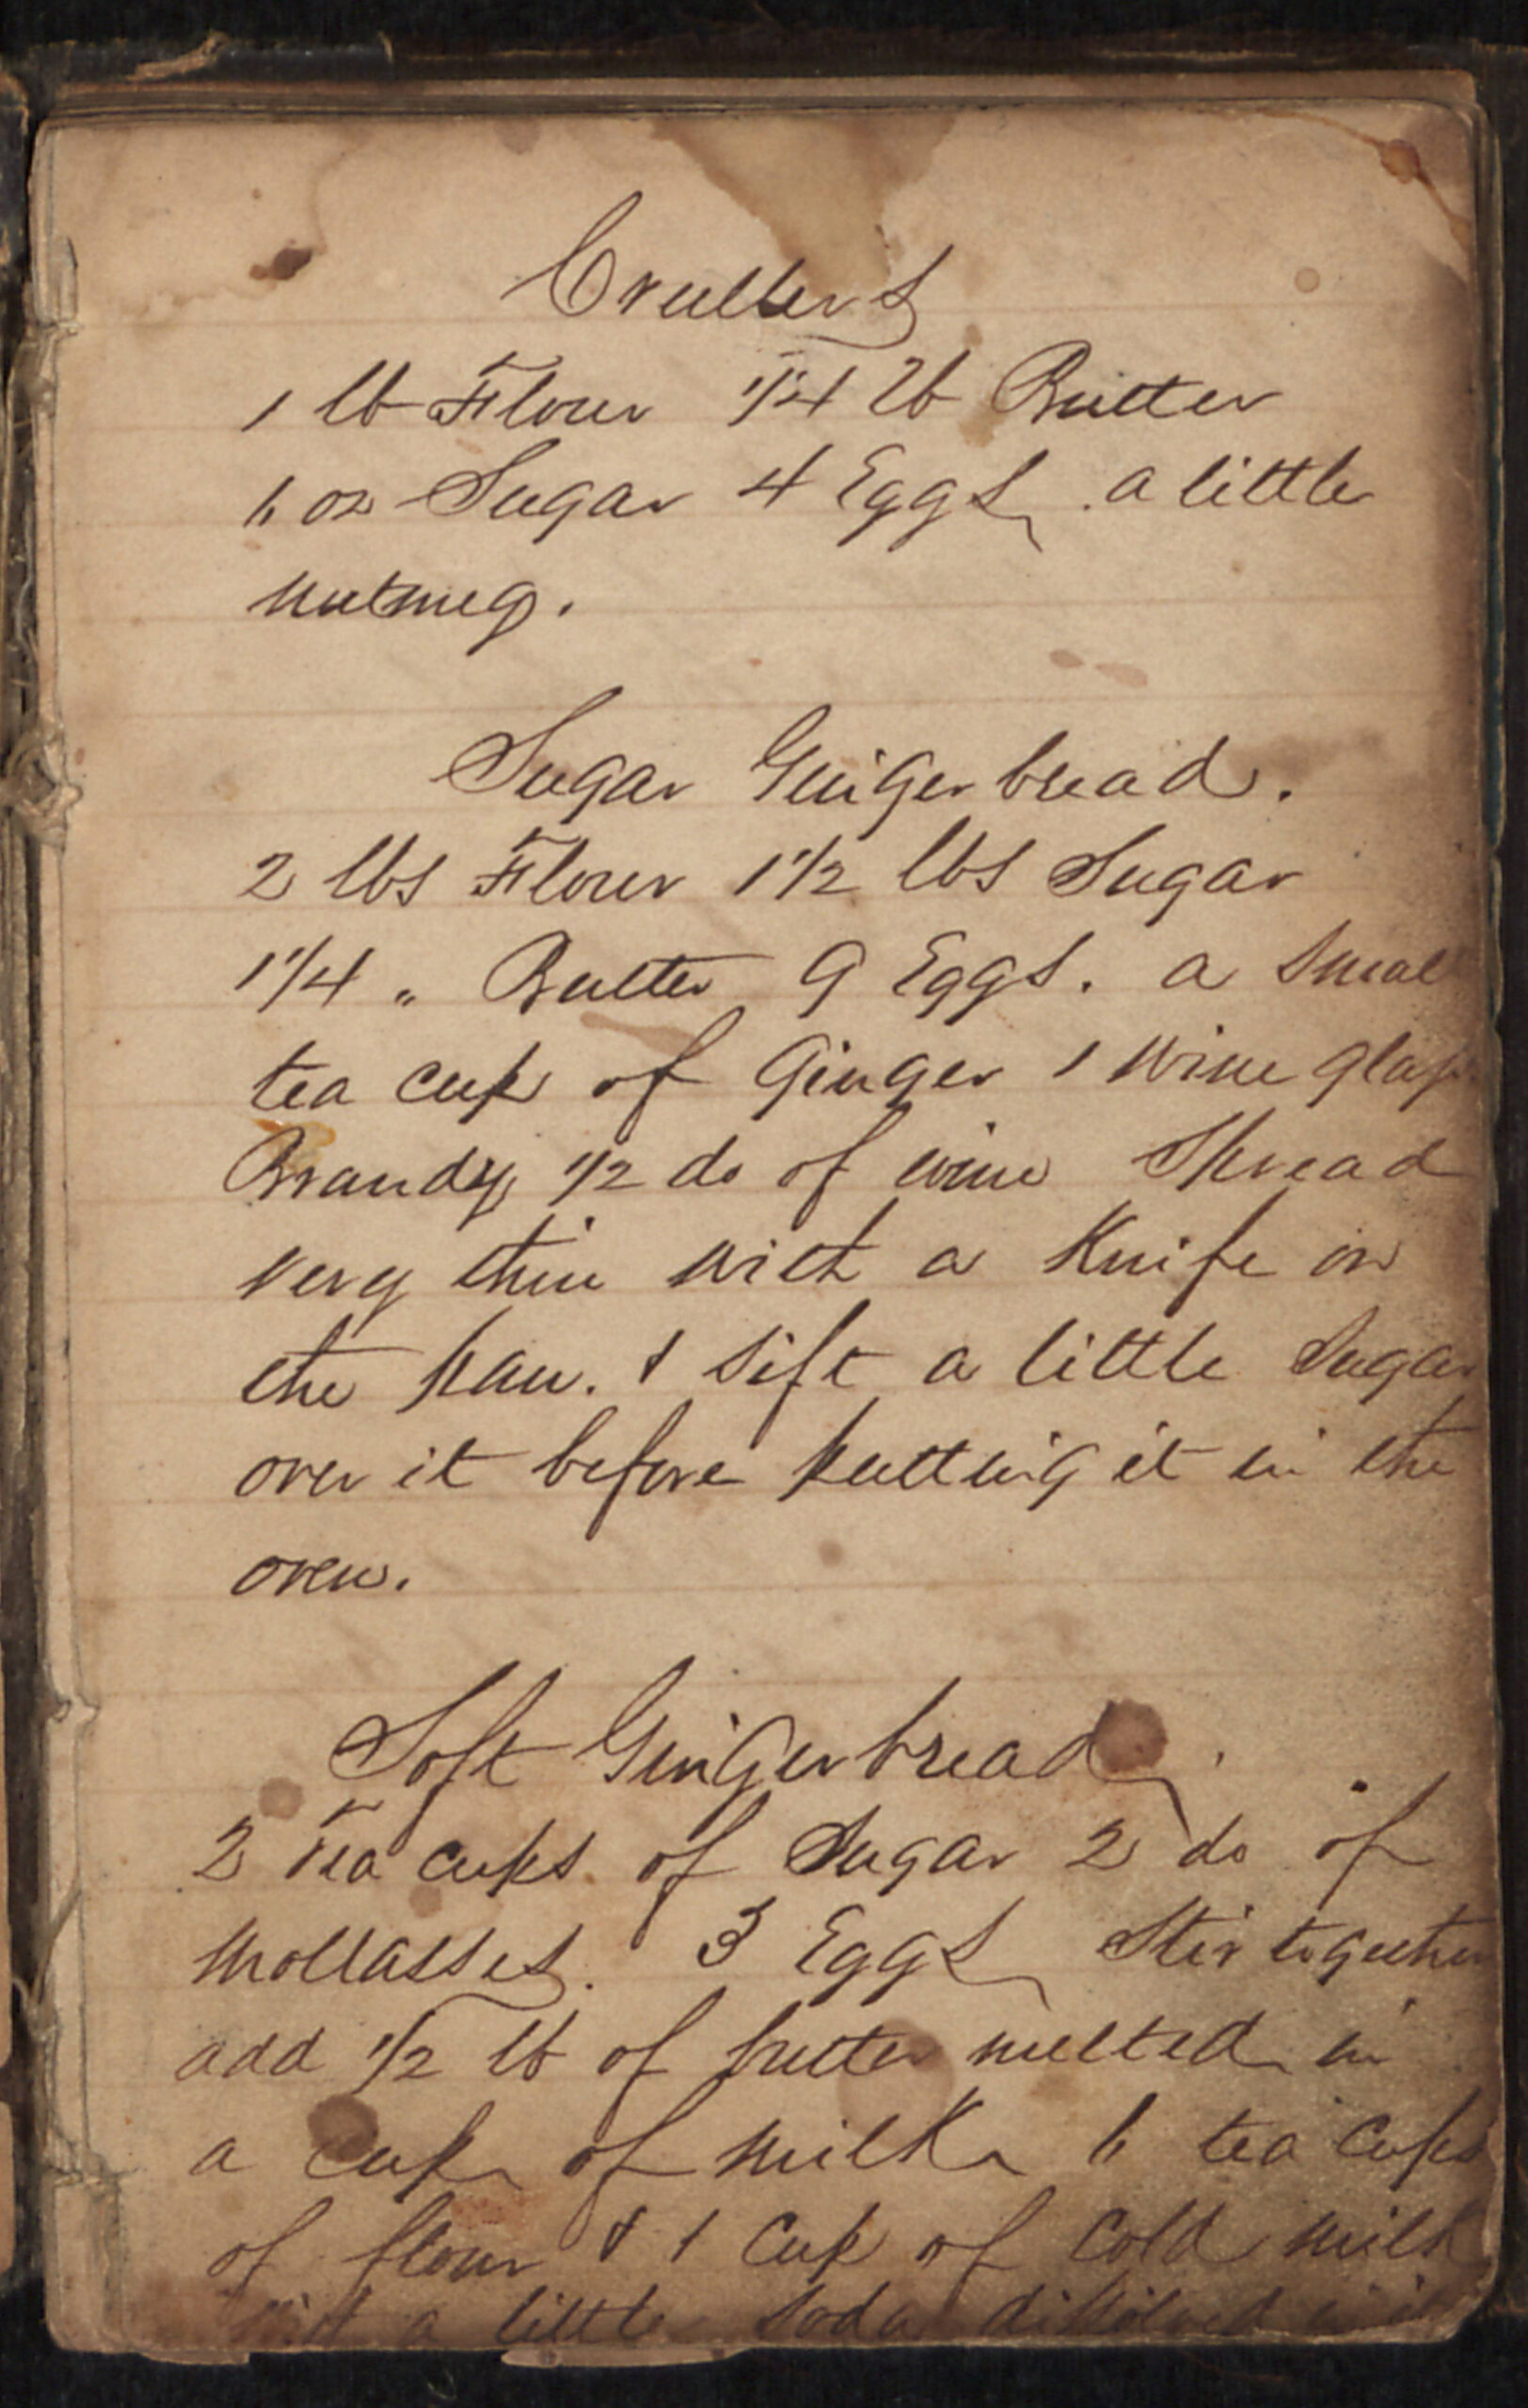 Crullers
1 lb Flour 1/4 lb Butter
6 oz Sugar 4 Eggs. a little
nutmeg.
Sugar Gingerbread.
2 lbs Flour 1 1/2 lbs Sugar
1 1/4 " Butter 9 Eggs. a small
tea cup of Ginger 1 wine glass
Brandy 1/2 do of wine Spread
very thin with a Knife on
the pan. & sift a little Sugar
over it before putting it in the
oven.
Soft Gingerbread
2 Tea cups of Sugar 2 do of
Mollasses. 3 Eggs Stir together
add 1/2 lb of butter melted in
a cup of milk 6 tea cups
of flour & 1 Cup of Cold milk
with a little soda dissolved in it